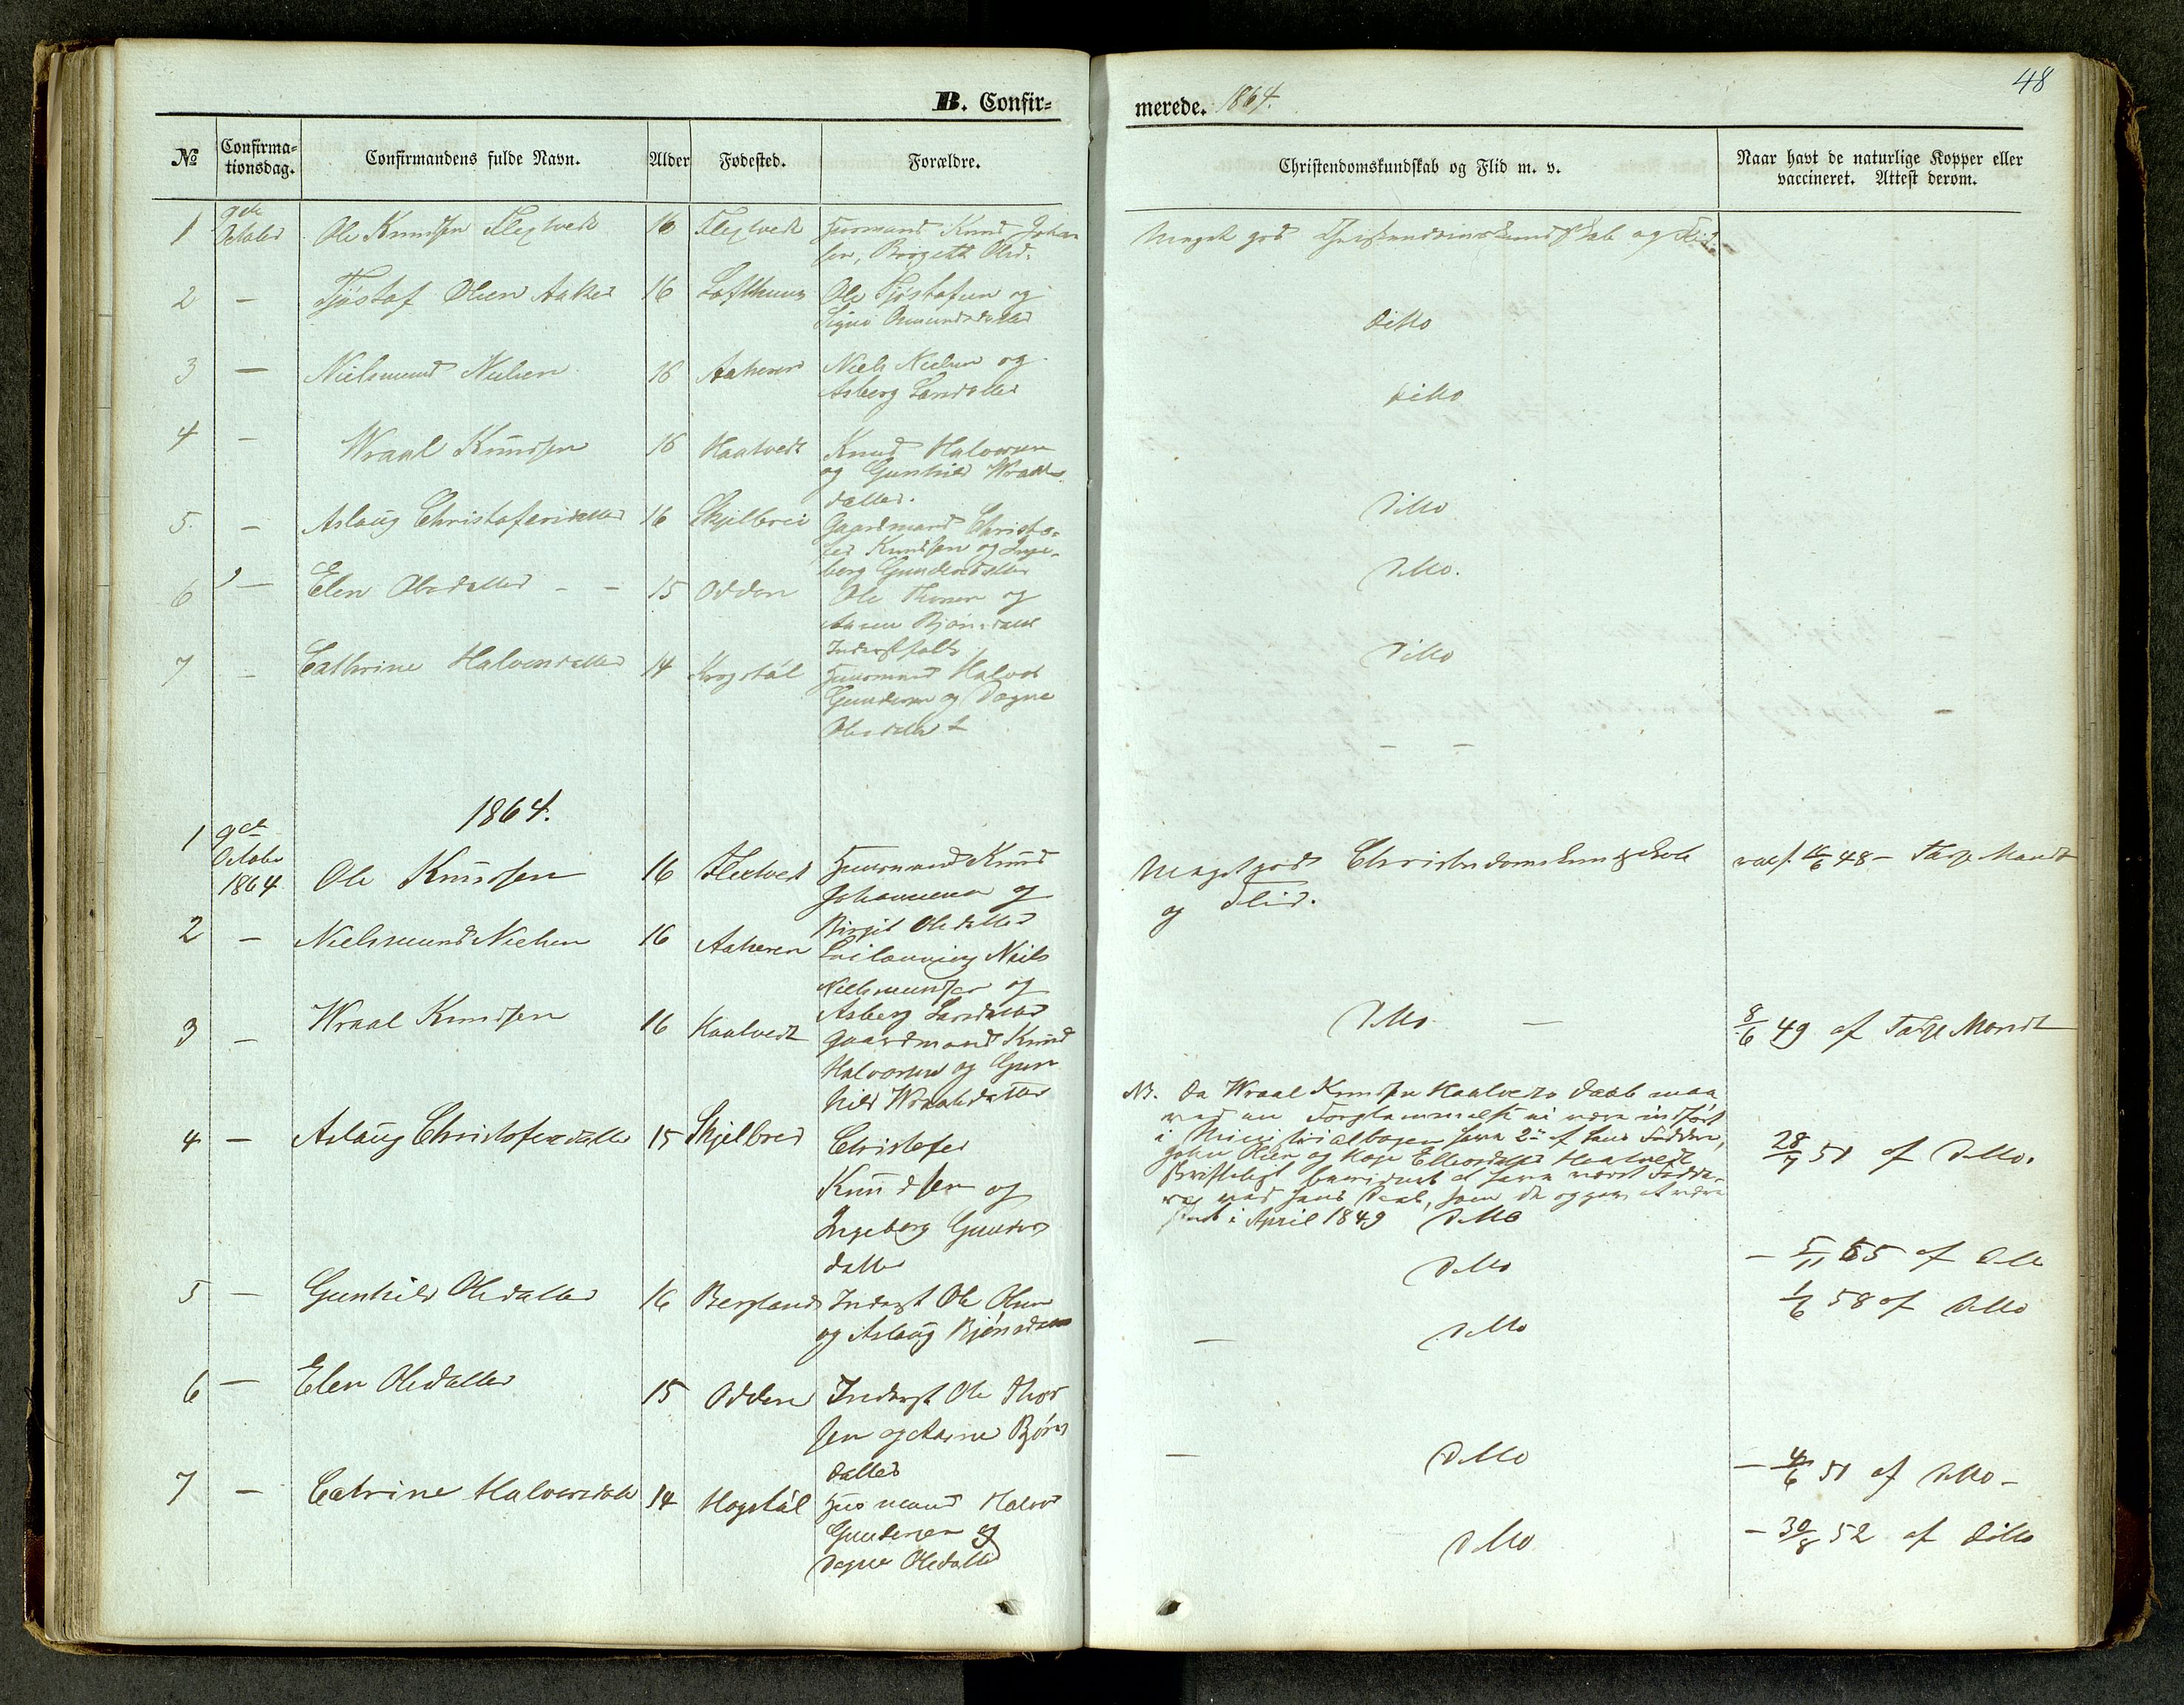 B. Confirmerede. 1864.
48
№ Confirmationsdag. Confirmandens fulde Navn. Alder Fødested. Forældre. Christendomskundskab og Flid m. v. Naar havt de naturlige Kopper eller vaccineret. Attest derom.
1 9de October Ole Knudsen Flextvedt 16 Flextvedt Huusmand Knud Johan
sen, Birgitt Olsd. Meget god Christendomskundskab og Flid.
2 — Tjøstaf Olsen Aaker 16 Lofthuus Ole Tjøstafsen og
Signe Osmundsdatter ditto
3 — Nielsmund Nielsen 16 Aakeren Niels Nielsen og
Asberg Larsdatter ditto
4 — Wraal Knudsen 16 Haatvedt Knud Halvorsen
og Gunhild Wraals
datter. Ditto
5. — Aslaug Christofersdatter 16 Skjelbrei Gaardmand Christo-
fer Knudsen og Inge-
borg Gundersdatter Ditto.
6 — Elen Olsdatter — — 15 Odden Ole Thorsen og
Aasne Bjørnsdatter
Inderstfolk Ditto
7 — Cathrine Halvorsdatter 14 Krogstål Huusmand Halvor
Gundersen og Dagne
Olsdatter
— —
1864.
1 9de October 1864 Ole Knudsen 16 Flextvedt Huusmand Knud
Johannesen og
Birgit Olsdatter Meget god Christendomskundskab
og Flid. 48 — Tarje Mandt
2 — Nielsmund Nielsen 16 Aakeren Niels
Nielsmundsen og
Asberg Larsdatter Ditto — 8/6 49 af Tarje Mandt
3 — Wraal Knudsen 16 Haatvedt Gaardmand Knud
Halvorsen og Gun
hild Wraalsdatter
NB. Da Wraal Knudsen Haatvedts Daab maa
ved en Forglemmelse ei være indført
i Ministerialbogen have 2de af hans Faddere,
John Olsen og Haatvedt
bevidnet at have været Faddere
ved hans Daab, som de opgav at være
i April 1849 Ditto
4 — Aslaug Christofersdatter 15 Skjelbrei Christofer
Knudsen og
Ingeborg Gunders
datter Ditto 28/7 51 af Ditto.
5 — Gunhild Olsdatter 16 Bergland Inderst Ole Olsen
og Aslaug Bjørnsdatter — Ditto — 5/11 55 af Ditto
1/6 58 af Ditto
6 — Elen Olsdatter 15 Odden Inderst Ole Thor
sen og Aasne Bjørns
datter — Ditto — 4/6 51 af Ditto —
7 — Catrine Halvorsdatter 14 Hogstål Husmand Halvor
Gundersen og
Dagne Olsdatter Ditto — 30/8 52 af Ditto